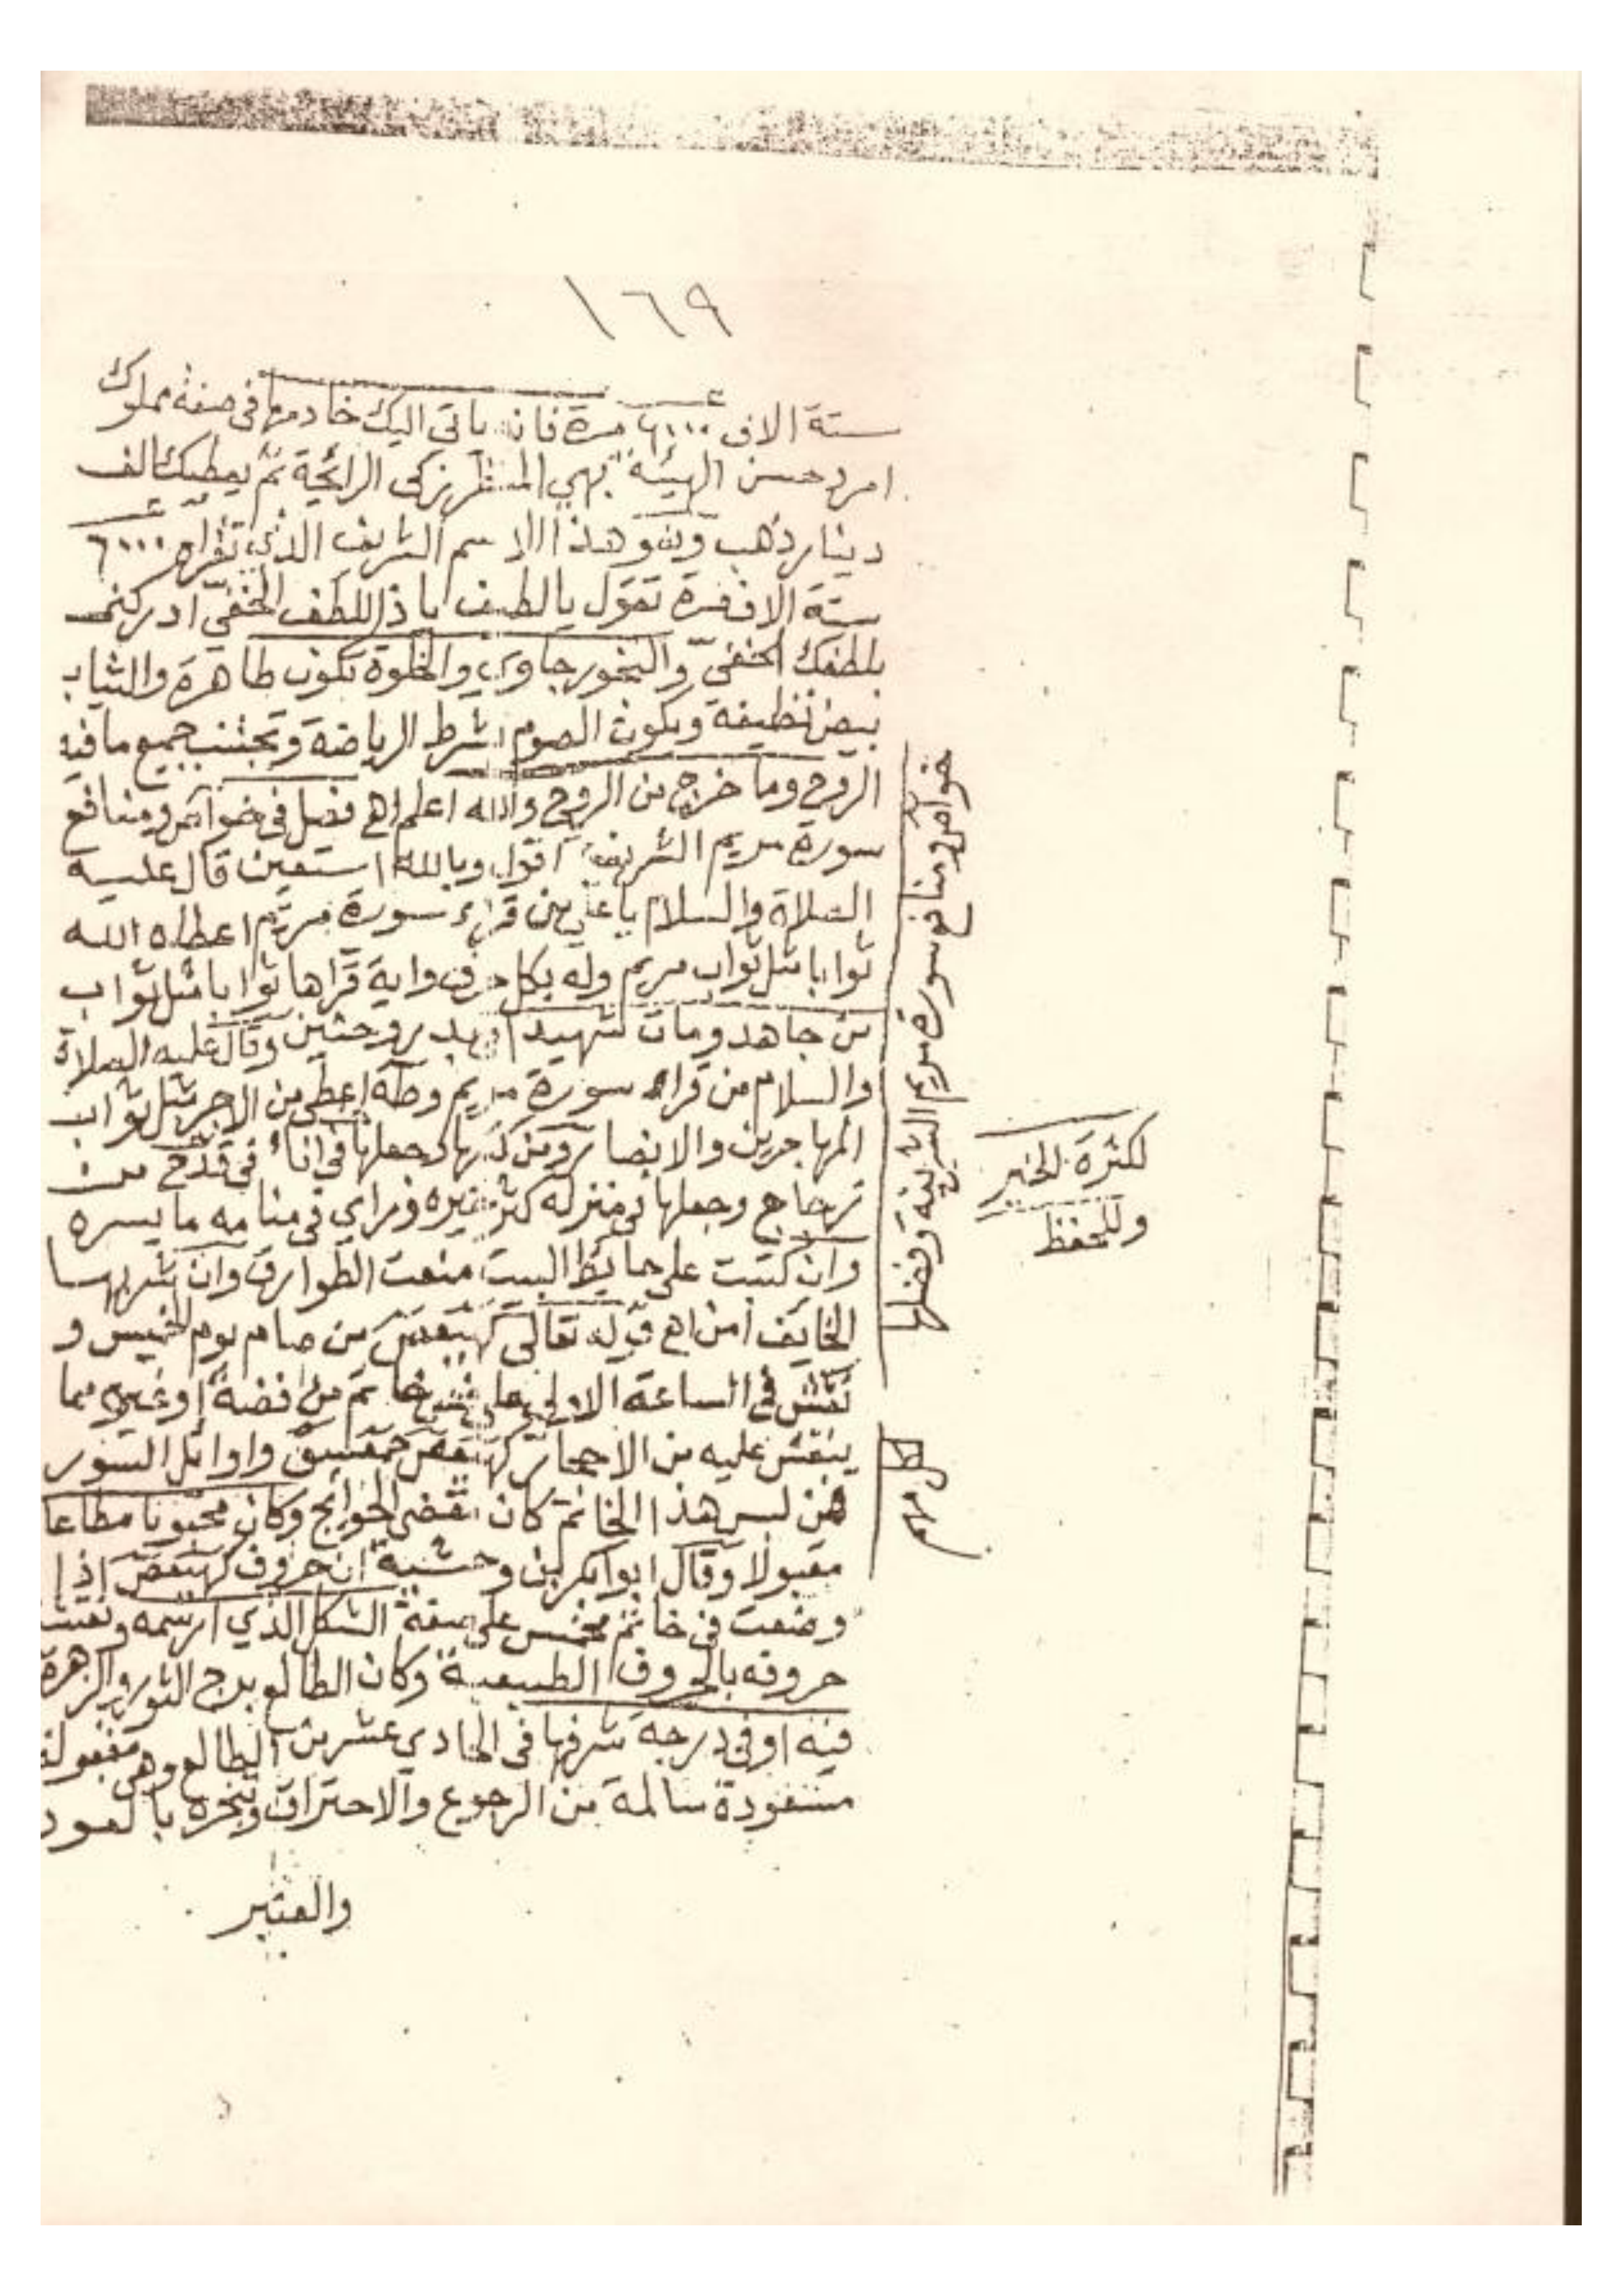 ١٦٩
ستة الاف ٦٠٠٠ مرة فانه ياتي اليك خادمها في صفة مملوك
امرد حسن الهيئة بهي المنظر زكي الرائحة ثم يعطيك الف
دينار ذهب وهو هذا الاسم الشريف الذي تقراه ٦٠٠٠
ستة الاف مرة تقول يا لطيف يا ذا اللطف الخفي ادركني
بلطفك الخفي والبخور جاوي والخلوة تكون طاهرة والثياب
بيض نظيفة ويكون الصوم بشرط الرياضة وتجتنب جميع ما فيه
الروح وما خرج من الروح والله اعلم اهـ فصل في خواص ومنافع
سورة مريم الشريفة اقول وبالله استعين قال عليه
الصلاة والسلام يا علي من قراء سورة مريم اعطاه الله
ثوابا مثل ثواب مريم وله بكل حرف واية قراها ثوابا مثل ثواب
من جاهد ومات شهيدا وبدر وحنين وقال عليه الصلاة
والسلام من قراء سورة مريم وطه اعطي من الاجر مثل ثواب
المهاجرين والانصار ومن كتبها وجعلها في اناء في قدح من
زجاج وجعلها في منزله كثر خيره وراي في منامه ما يسره
وان كتبت على حائط البيت منعت الطوارق وان شربها
الخائف امن اهـ قوله تعالى كهيعص من صام يوم الخميس و
نقش في الساعة الاولى على فص خاتم من فضة او غيره مما
ينقش عليه من الاحجار كهيعص حمعسق واوائل السور
فمن لبس هذا الخاتم كان مقضي الحوائج وكان محبوبا مطاعا
مقبولا وقال ابوا بكر بن وحشية ان حروف كهيعص اذا
وضعت في خاتم مخمس على صفة الشكل الذي ارسمه ونقشت
حروفه بالحروف الطبيعية وكان الطالع برج الثور والزهرة
فيه او في درجة شرفها في الحادي عشر من الطالع وهي مقبولة
مسعودة سالمة من الرجوع والاحتراق وتبخره بالعود
والعنبر
خواص ومنافع سورة مريم الشريفة وفضلها
لكثرة الخير
وللحفظ
مهم